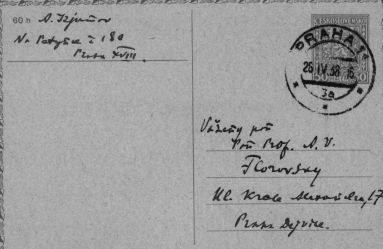 60 h
Na Petynce č 180
Praha XVIII.
ČESKOSLOVENSKO
PRAHA
26 IV. 38
3a
Vážený pan
Pan Prof. A. V.
Florovsky
Ul. Krale 17
Praha Dejvice.